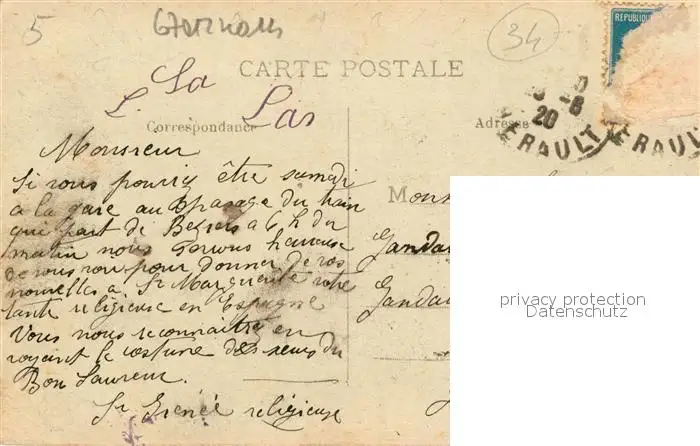 5
34
REPUBLIQUE
CARTE POSTALE
La
L. Las
Correspondance
Adresse
20
HERAULT
HERAULT
Monsieur
Si vous pouviz être samedi
a la gare au passage du train
qui part de Beziers a 6 h du
matin nous serons heureuse
de vous voir pour donner de vos
nouvelles a Sr Marguerite votre
tante religieuse en Espagne
Vous nous reconnaitrez en
voyant le costume des seurs du
Bon Sauveur.
Sr Irenée religieuse
Mon
Gendar
Gendar
privacy protection
Datenschutz